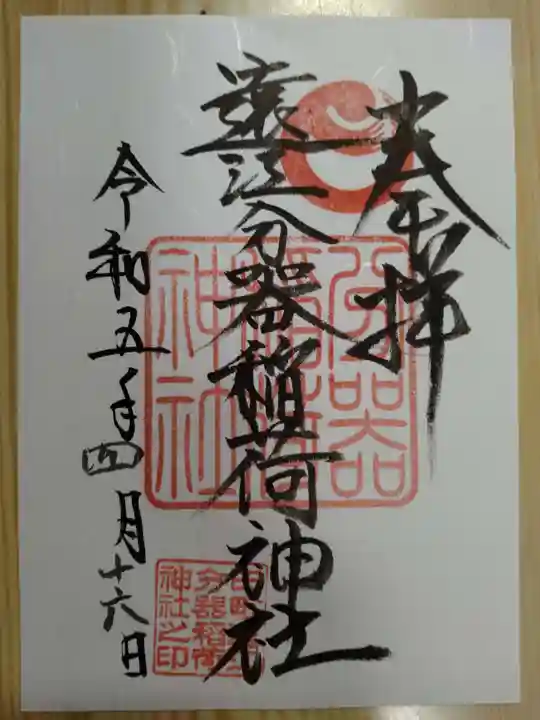 奉拝
遠江分器稲荷神社
令和五年四月十六日
分器
稲荷
神社
分器稲荷
神社之印